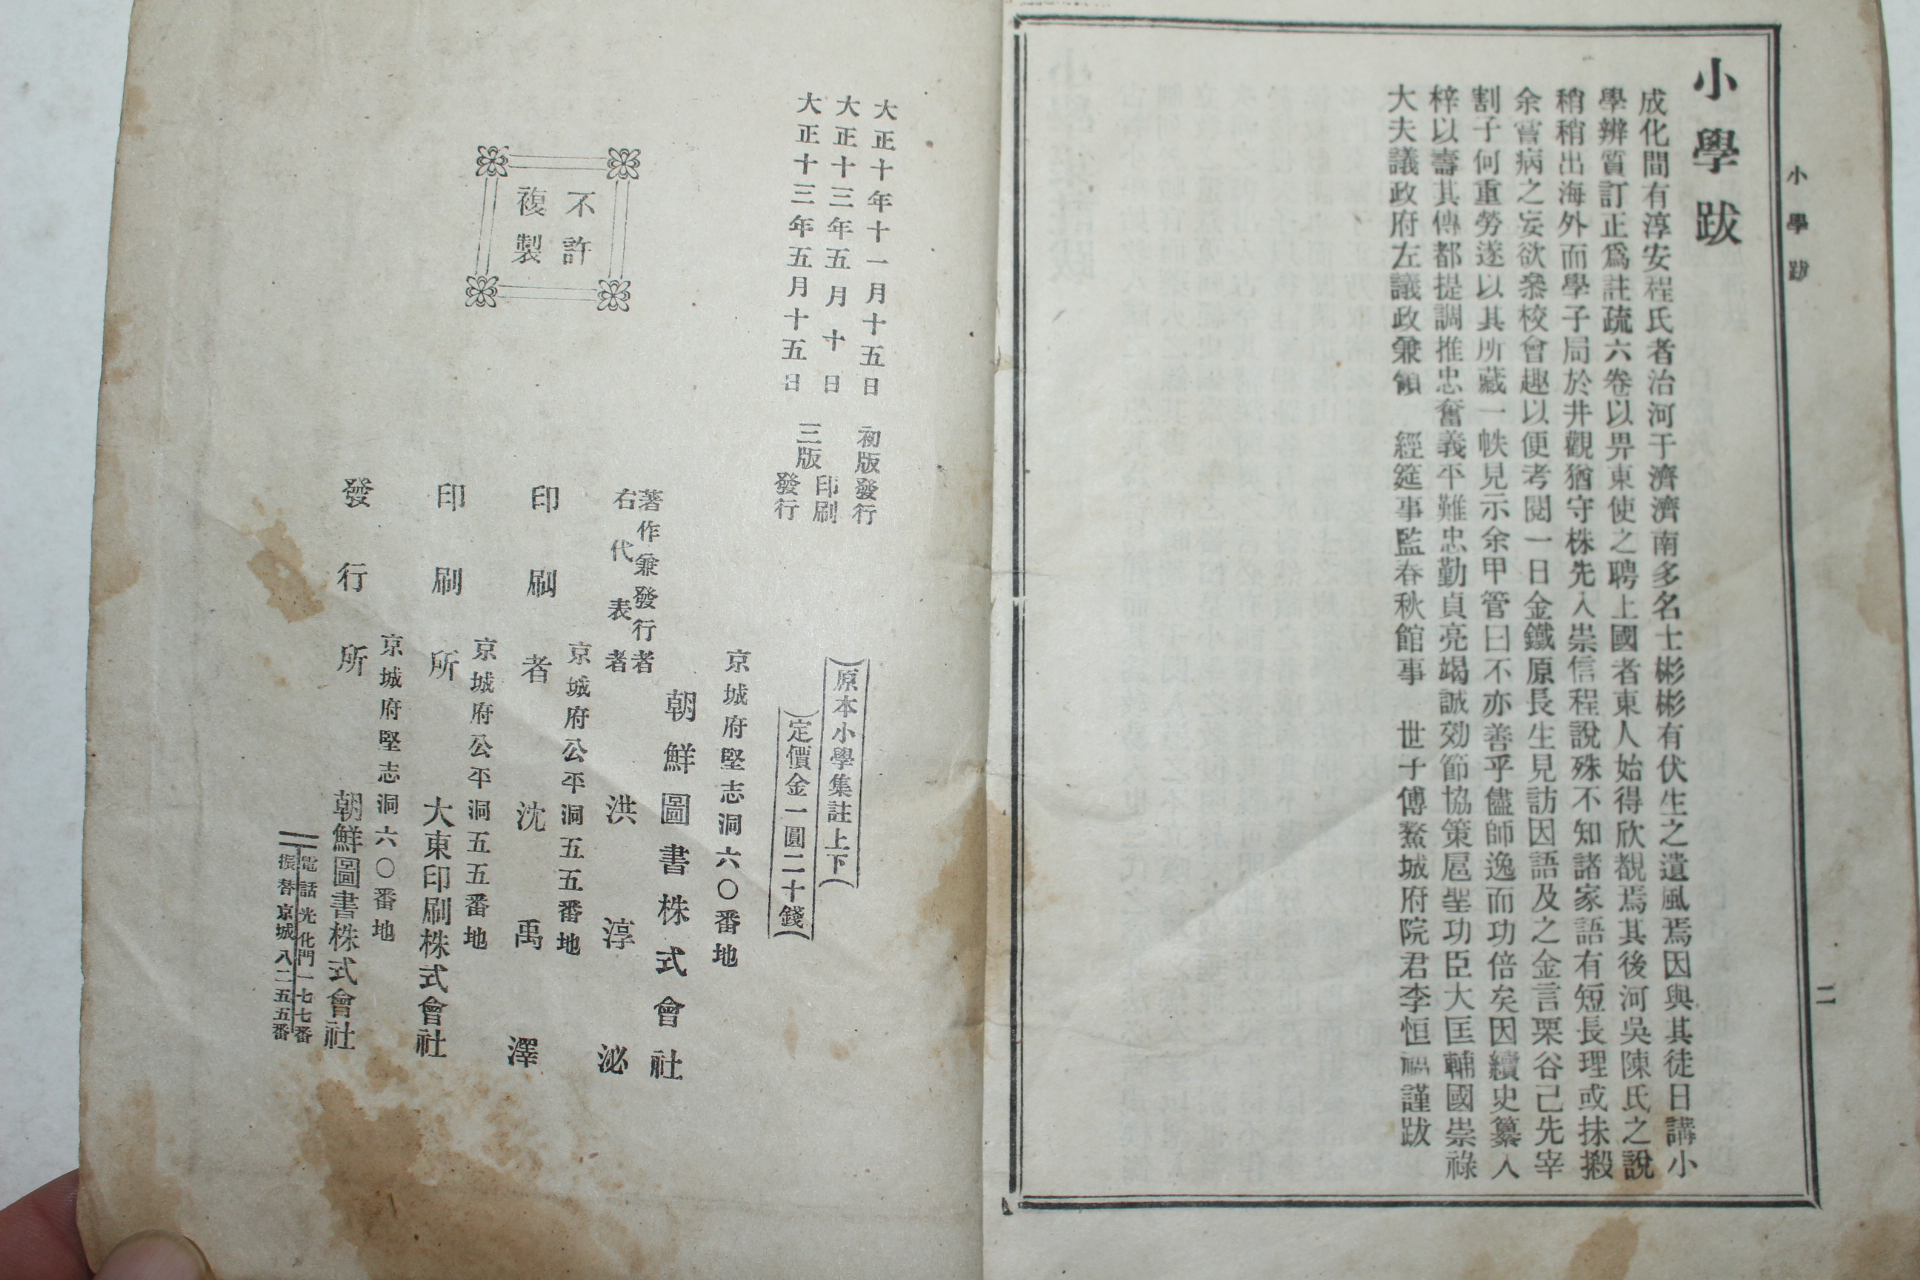 小學跋
二
小學跋
成化間有淳安程氏者治河于濟濟南多名士彬彬有伏生之遺風焉因與其徒日講小
學辨質訂正爲註疏六卷以畀東使之聘上國者東人始得欣覩焉其後河吳陳氏之說
稍稍出海外而學子局於井觀猶守株先入崇信程說殊不知諸家語有短長理或抹搬
余嘗病之妄欲叅校會趣以便考閱一日金鐵原長生見訪因語及之金言栗谷己先宰
割子何重勞遂以其所藏一帙見示余甲管曰不亦善乎儘師逸而功倍矣因續史纂入
梓以壽其傳都提調推忠奮義平難忠勤貞亮竭誠効節協策扈聖功臣大匡輔國崇祿
大夫議政府左議政兼領　經筵事監春秋館事　世子傅鰲城府院君李恒福謹跋
大正十年十一月十五日　初版發行
大正十三年五月十日　三版印刷
大正十三年五月十五日　發行
不許
複製
原本小學集註上下
定價金一圓二十錢
京城府堅志洞六〇番地
著作兼發行者　朝鮮圖書株式會社
右代表者　洪淳泌
京城府公平洞五五番地
印刷者　沈禹澤
京城府公平洞五五番地
印刷所　大東印刷株式會社
京城府堅志洞六〇番地
發行所　朝鮮圖書株式會社
電話光化門一七七番
振替京城八二五五番